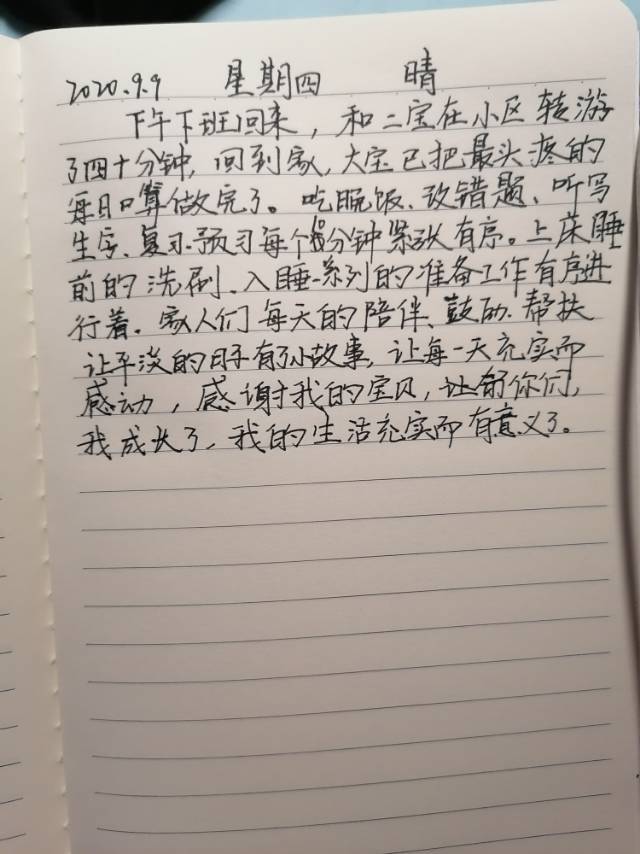 2020.9.9 星期四 晴
下午下班回来，和二宝在小区转游
了四十分钟，回到家，大宝已把最头疼的
每日口算做完了。吃晚饭、改错题、听写
生字、复习、预习每个10分钟紧张有序。上床睡
前的洗刷、入睡一系列的准备工作有序进
行着。家人们每天的陪伴、鼓励、帮扶
让平淡的日子有了故事，让每一天充实而
感动，感谢我的宝贝，让你们，
我成长了，我的生活充实而有意义了。